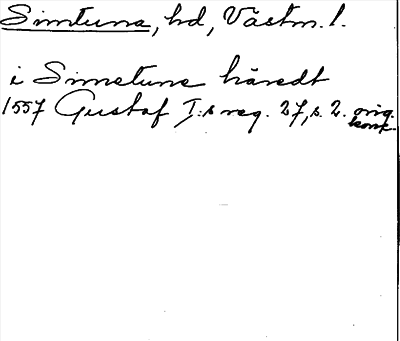 Simtuna, hd, Västm. l.
i Simetuna häredt
1557 Gustaf I:s reg. 27, s. 2. orig.
konc.